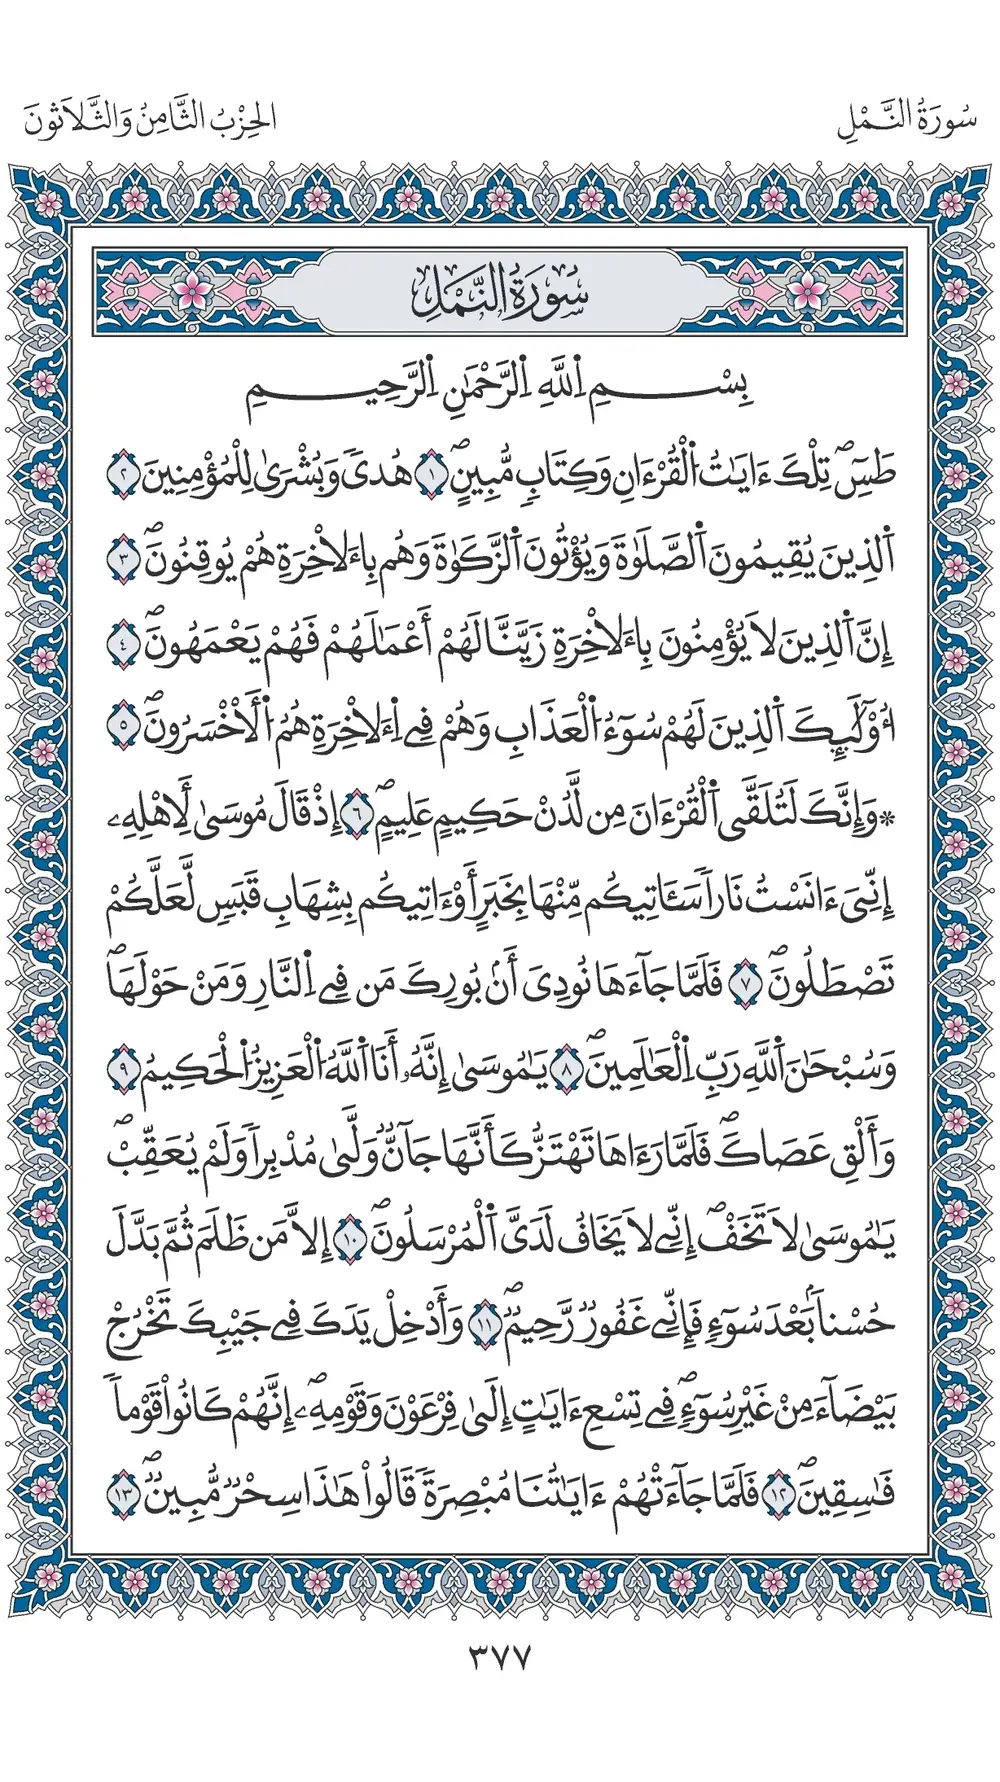 سُورَةُ النَّمْلِ
الحِزْبُ الثَّامِنُ وَالثَّلَاثُونَ
سُورَةُ النَّمْلِ
بِسْمِ اِ۬للَّهِ اِ۬لرَّحْمَٰنِ اِ۬لرَّحِيمِ
طَسِٓۖ تِلْكَ ءَايَٰتُ اُ۬لْقُرْءَانِ وَكِتَابٖ مُّبِينٍۖ ١ هُدىٗ وَبُشْر۪ىٰ لِلْمُؤْمِنِينَ ٢
اَ۬لذِينَ يُقِيمُونَ اَ۬لصَّلَوٰةَ وَيُؤْتُونَ اَ۬لزَّكَوٰةَ وَهُم بِالَاخِرَةِ هُمْ يُوقِنُونَۖ ٣
إِنَّ اَ۬لذِينَ لَا يُؤْمِنُونَ بِالَاخِرَةِ زَيَّنَّا لَهُمُۥٓ أَعْمَٰلَهُمْ فَهُمْ يَعْمَهُونَۖ ٤
أُوْلَٰٓئِكَ اَ۬لذِينَ لَهُمْ سُوٓءُ اُ۬لْعَذَابِ وَهُمْ فِے اِ۬لَاخِرَةِ هُمُ اُ۬لَاخْسَرُونَۖ ٥
*وَإِنَّكَ لَتُلَقَّى اَ۬لْقُرْءَانَ مِن لَّدُنْ حَكِيمٍ عَلِيمٍۖ ٦ إِذْ قَالَ مُوس۪ىٰ لِأَهْلِهِۦٓ
إِنِّىَ ءَانَسْتُ نَاراٗ سَـَٔاتِيكُم مِّنْهَا بِخَبَرٍ أَوَ ـ اتِيكُم بِشِهَابِ قَبَسٖ لَّعَلَّكُمْ
تَصْطَلُونَۖ ٧ فَلَمَّا جَآءَهَا نُودِىَ أَنۢ بُورِكَ مَن فِے اِ۬لنَّارِ وَمَنْ حَوْلَهَاۖ
وَسُبْحَٰنَ اَ۬للَّهِ رَبِّ اِ۬لْعَٰلَمِينَۖ ٨ يَٰمُوس۪ىٰٓ إِنَّهُۥٓ أَنَا اَ۬للَّهُ اُ۬لْعَزِيزُ اُ۬لْحَكِيمُ ٩
وَأَلْقِ عَصَاكَۖ فَلَمَّا ر۪ء۪اهَا تَهْتَزُّ كَأَنَّهَا جَآنّٞ وَلّ۪ىٰ مُدْبِراٗ وَلَمْ يُعَقِّبْۖ
يَٰمُوس۪ىٰ لَا تَخَفِۖ اِنِّے لَا يَخَافُ لَدَىَّ اَ۬لْمُرْسَلُونَۖ ١٠ إِلَّا مَن ظَلَمَ ثُمَّ بَدَّلَ
حُسْناَۢ بَعْدَ سُوٓءٖ فَإِنِّے غَفُورٞ رَّحِيمٞۖ ١١ وَأَدْخِلْ يَدَكَ فِے جَيْبِكَ تَخْرُجْ
بَيْضَآءَ مِنْ غَيْرِ سُوٓءٖۖ فِے تِسْعِ ءَايَٰتٍ إِلَىٰ فِرْعَوْنَ وَقَوْمِهِۦٓۖ إِنَّهُمْ كَانُواْ قَوْماٗ
فَٰسِقِينَۖ ١٢ فَلَمَّا جَآءَتْهُمُۥٓ ءَايَٰتُنَا مُبْصِرَةٗ قَالُواْ هَٰذَا سِحْرٞ مُّبِينٞۖ ١٣
٣٧٧